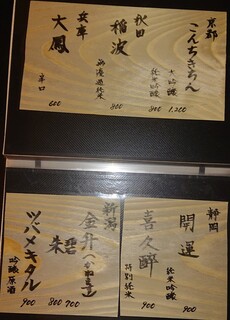 京都
こんちきちん
大吟醸 1,200
純米吟醸 800
秋田
稲波
兵庫
大鳳
辛口
600
静岡
開運
純米吟醸
900
喜久酔
特別純米
900
新潟
金升(かねます)
碧 700
朱 800
ツバメキタル
吟醸原酒
900